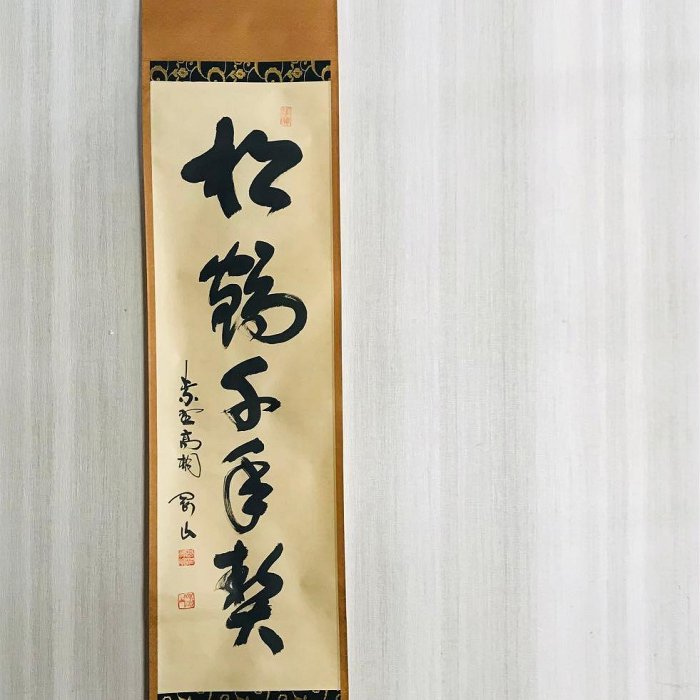 松鶴千年契
紫野高桐 剛山